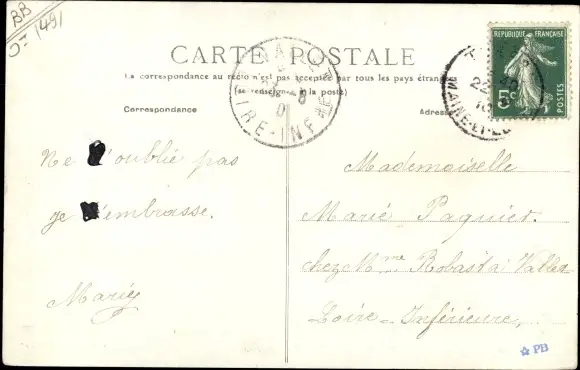 BB
(49)
CARTE POSTALE
La correspondance au recto n'est pas acceptée par tous les pays étrang
(se renseigner à la poste)
Correspondance
Adresse
REPUBLIQUE FRANÇAISE
5c
POSTES
MAINE-ET-L
IRE-INF
Ne oublie pas
je embrasse.
Mademoiselle
Marie Paquier.
chez Mme Robast à Vallet
Loire-Inférieure,
PB